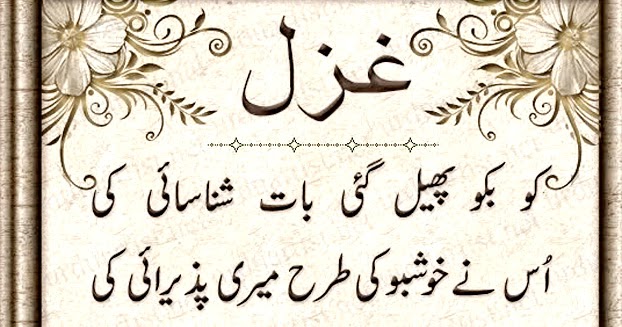 غزل
کو بکو پھیل گئی بات شناسائی کی
اُس نے خوشبو کی طرح میری پذیرائی کی